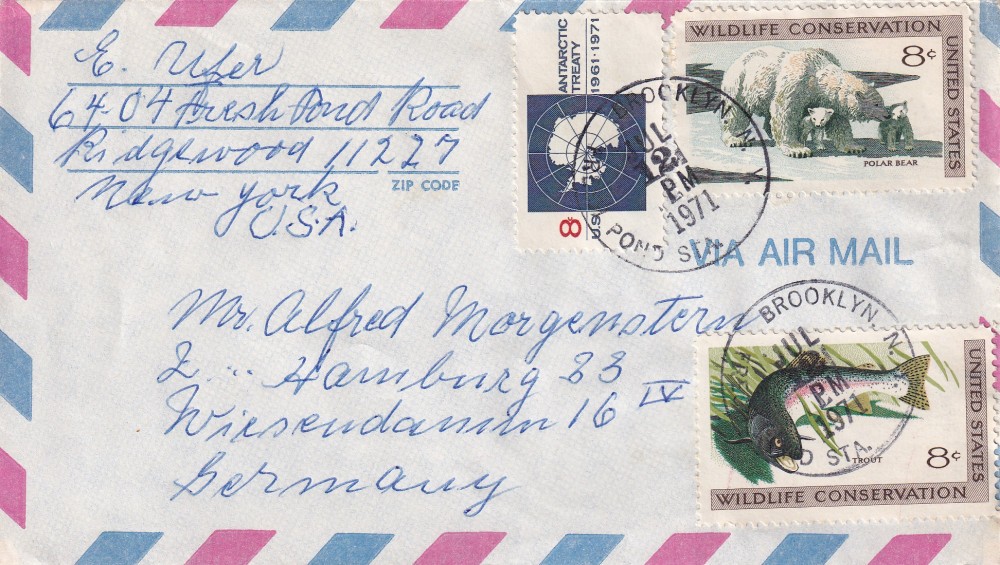 E. Ufer
64-04 Fresh Pond Road
Ridgewood 11227
New York
ZIP CODE
U.S.A.
ANTARCTIC
TREATY
1961·1971
8¢
US
WILDLIFE CONSERVATION
8¢
UNITED STATES
POLAR BEAR
BROOKLYN, N. Y.
JUL
12
PM
1971
POND STA.
VIA AIR MAIL
Mr. Alfred Morgenstern
2... Hamburg 33
Wiesendamm 16 IV
Germany
BROOKLYN, N.
JUL
PM
1971
D STA.
TROUT
8¢
UNITED STATES
WILDLIFE CONSERVATION